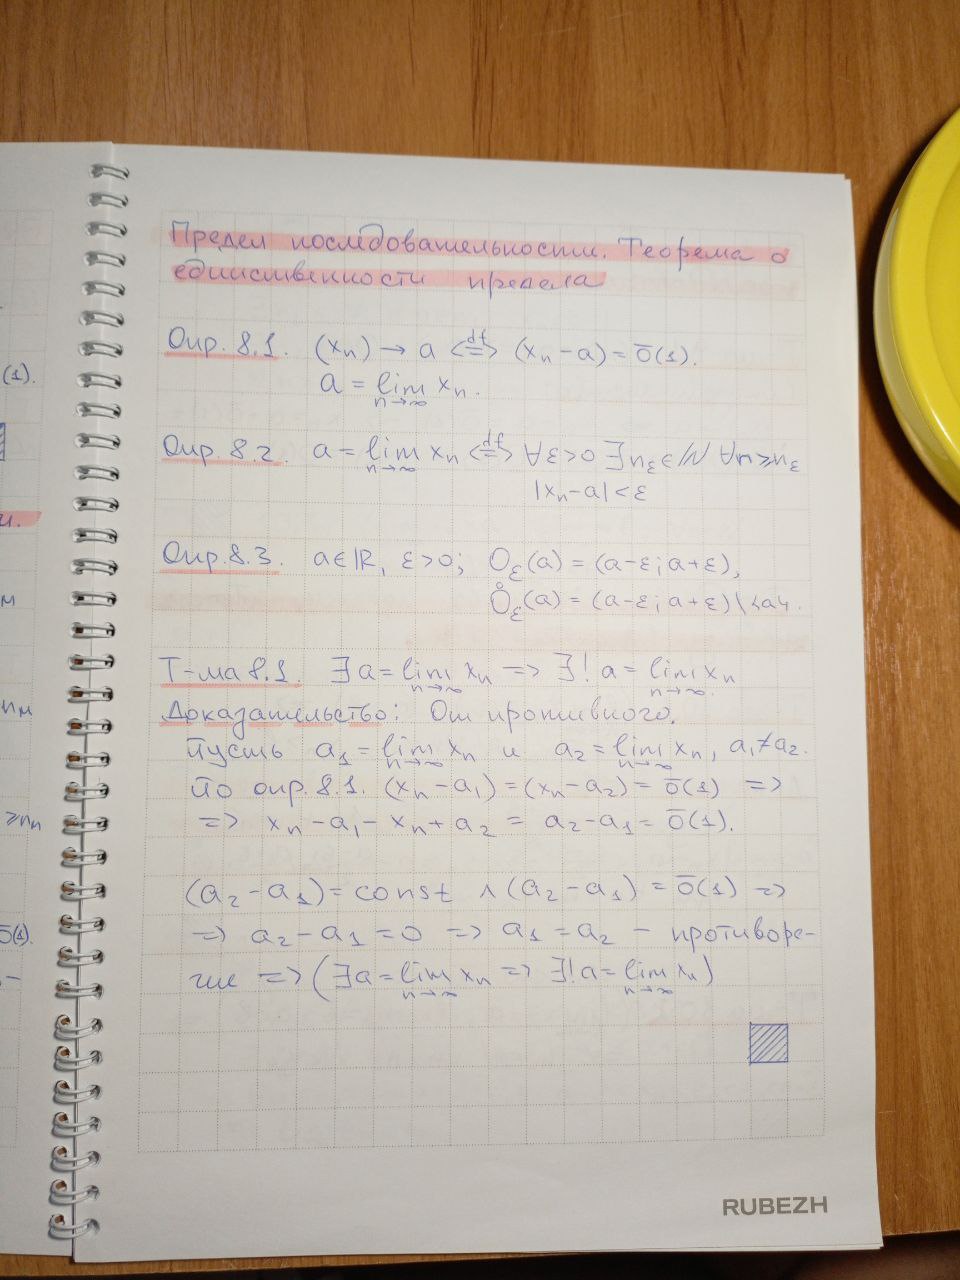 Предел последовательности. Теорема о
единственности предела
Опр. 8.1. (xₙ) → a <=>^df (xₙ - a) = ō(1).
a = lim_{n→∞} xₙ.
Опр. 8.2. a = lim_{n→∞} xₙ <=>^df ∀ε>0 ∃n_ε∈ℕ ∀n⩾n_ε
|xₙ-a|<ε
Опр. 8.3. a∈ℝ, ε>0; O_ε(a) = (a-ε; a+ε),
O̊_ε(a) = (a-ε; a+ε)\{a}.
Т-ма 8.1. ∃a = lim_{n→∞} xₙ => ∃! a = lim_{n→∞} xₙ
Доказательство: От противного.
Пусть a₁ = lim_{n→∞} xₙ и a₂ = lim_{n→∞} xₙ, a₁≠a₂.
По опр. 8.1. (xₙ-a₁) = (xₙ-a₂) = ō(1) =>
=> xₙ-a₁-xₙ+a₂ = a₂-a₁ = ō(1).
(a₂-a₁) = const ∧ (a₂-a₁) = ō(1) =>
=> a₂-a₁=0 => a₁=a₂ - противоре-
чие => (∃a = lim_{n→∞} xₙ => ∃! a = lim_{n→∞} xₙ)
RUBEZH
(1).
и.
м
nₘ
⩾nₙ
ō(1).
-